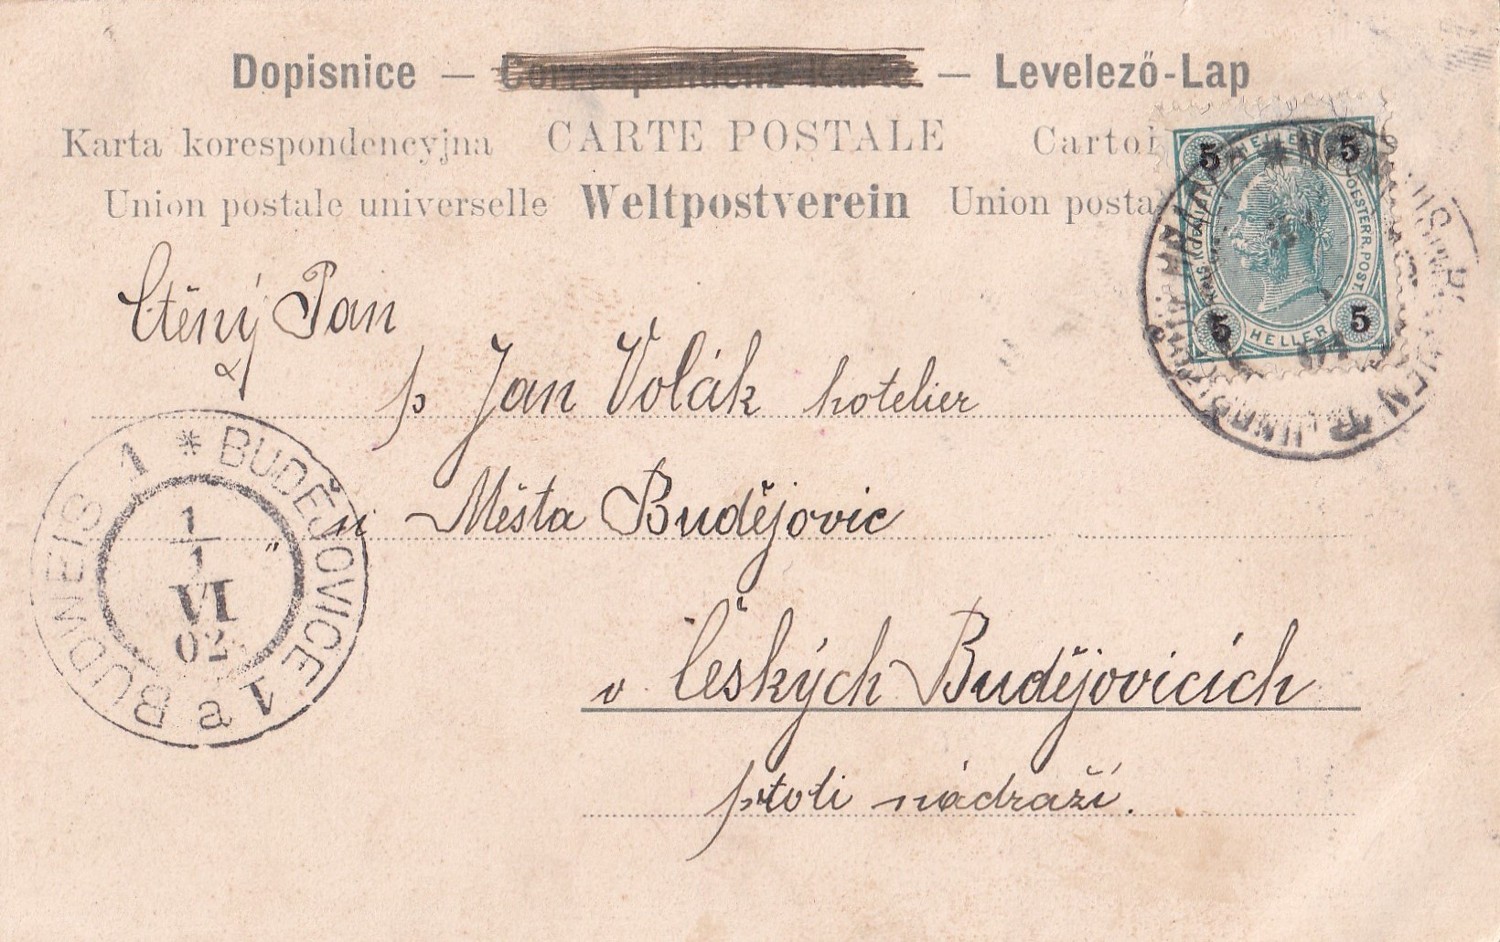 Dopisnice — Correspondenz-Karte — Levelező-Lap
Karta korespondencyjna CARTE POSTALE Cartol
Union postale universelle Weltpostverein Union posta
Ctěný Pan
p Jan Volák hotelier
u Města Budějovic
v Českých Budějovicích
ptoti nádraží.
BUDWEIS 1 * BUDĚJOVICE 1 a
1
1
VI
02
5 HELLER 5
OESTERR. POST.
5 HELLER 5